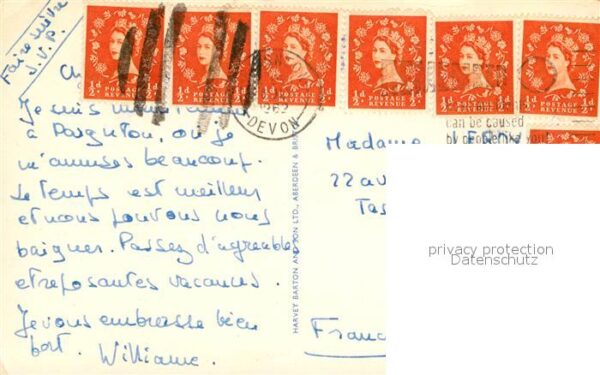 Faire suivre
S.V.P.
½d POSTAGE REVENUE ½d
½d POSTAGE REVENUE ½d
½d POSTAGE REVENUE ½d
½d POSTAGE REVENUE ½d
½d POSTAGE REVENUE ½d
½d POSTAGE REVENUE ½d
DEVON
can be caused
Je suis
à Paignton, où je
m'amuses beaucoup.
Le temps est meilleur
et nous pouvons nous
baigner. Passez d'agreables
et reposantes vacances.
Je vous embrasse bien
fort. Williame.
HARVEY BARTON AND SON LTD., ABERDEEN & BR
Madame
22 av
Tas
Franc
privacy protection
Datenschutz